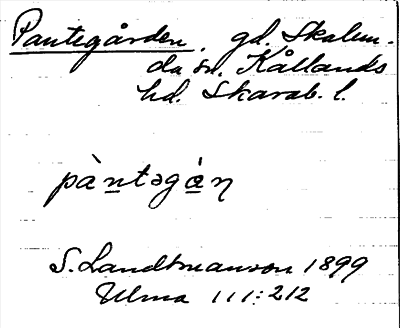 Pantegården, gd. Skalun-
da sn. Kållands
hd. Skarab. l.
pàntəgån
S. Landtmanson 1899
Ulma 111:212